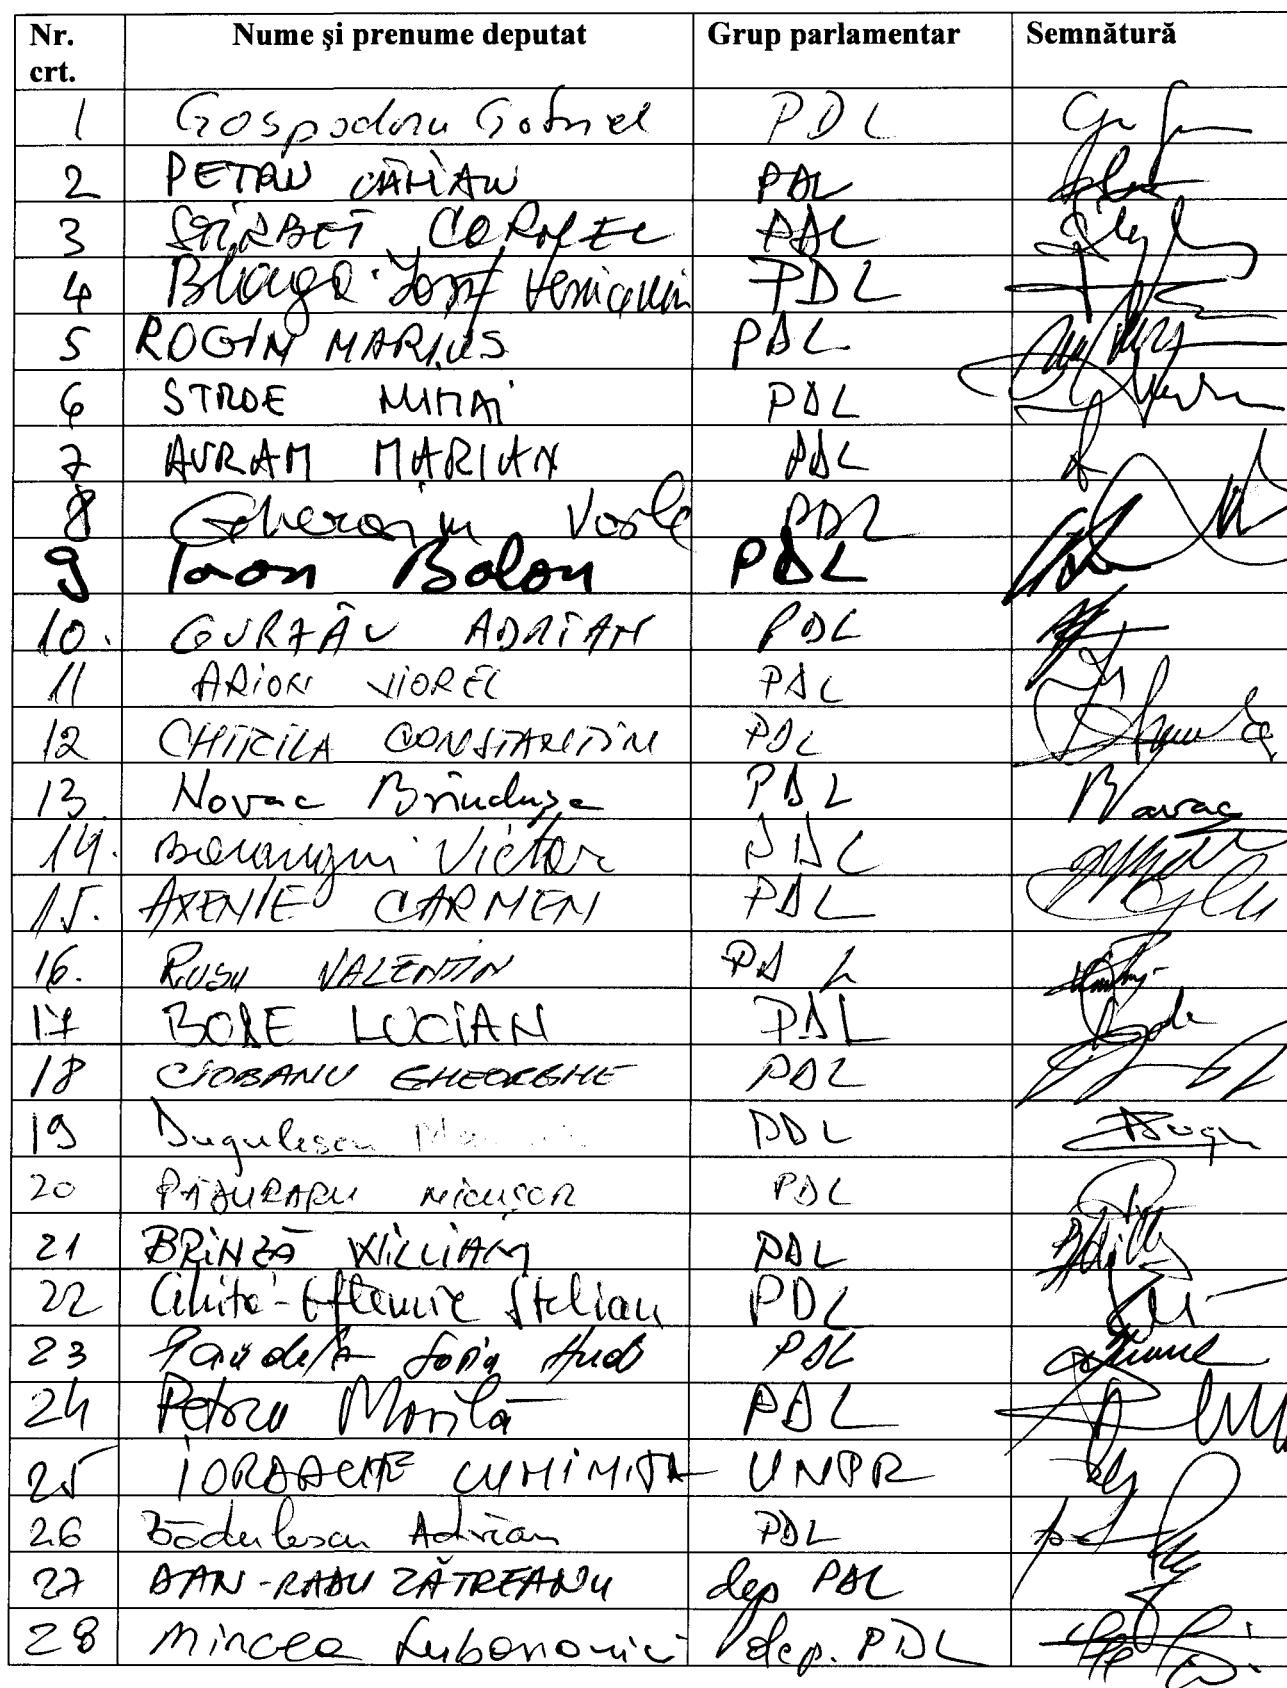 Nr. crt. Nume şi prenume deputat Grup parlamentar Semnătură
1 Gospodaru Gabriel PDL
2 PETRU CĂLIAN PDL
3 ŞTIRBEŢ CORNEL PDL
4 Blaga Iosif Veniamin PDL
5 ROGIN MARIUS PDL
6 STROE MIHAI PDL
7 AVRAM MARIAN PDL
8 Gherasim Vasile PDL
9 Ioan Balan PDL
10. GURZĂU ADRIAN PDL
11 ARION VIOREL PDL
12 CHIRILA CONSTANTIN PDL
13 Novac Brîndușa PDL
14. Boiangiu Victor PDL
15. AXENIE CARMEN PDL
16. RUSU VALENTIN PDL
17 BODE LUCIAN PDL
18 CIOBANU GHEORGHE PDL
19 Dugulescu PDL
20 PĂDURARU NICUŞOR PDL
21 BRÎNZĂ WILLIAM PDL
22 Ghiță-Eftemie Stelian PDL
23 PDL
24 Petru Movilă PDL
25 IORDACHE LUMINIȚA UNPR
26 Bădulescu Adrian PDL
27 DAN-RADU ZĂTREANU dep PDL
28 Mircea Lubanovici dep. PDL